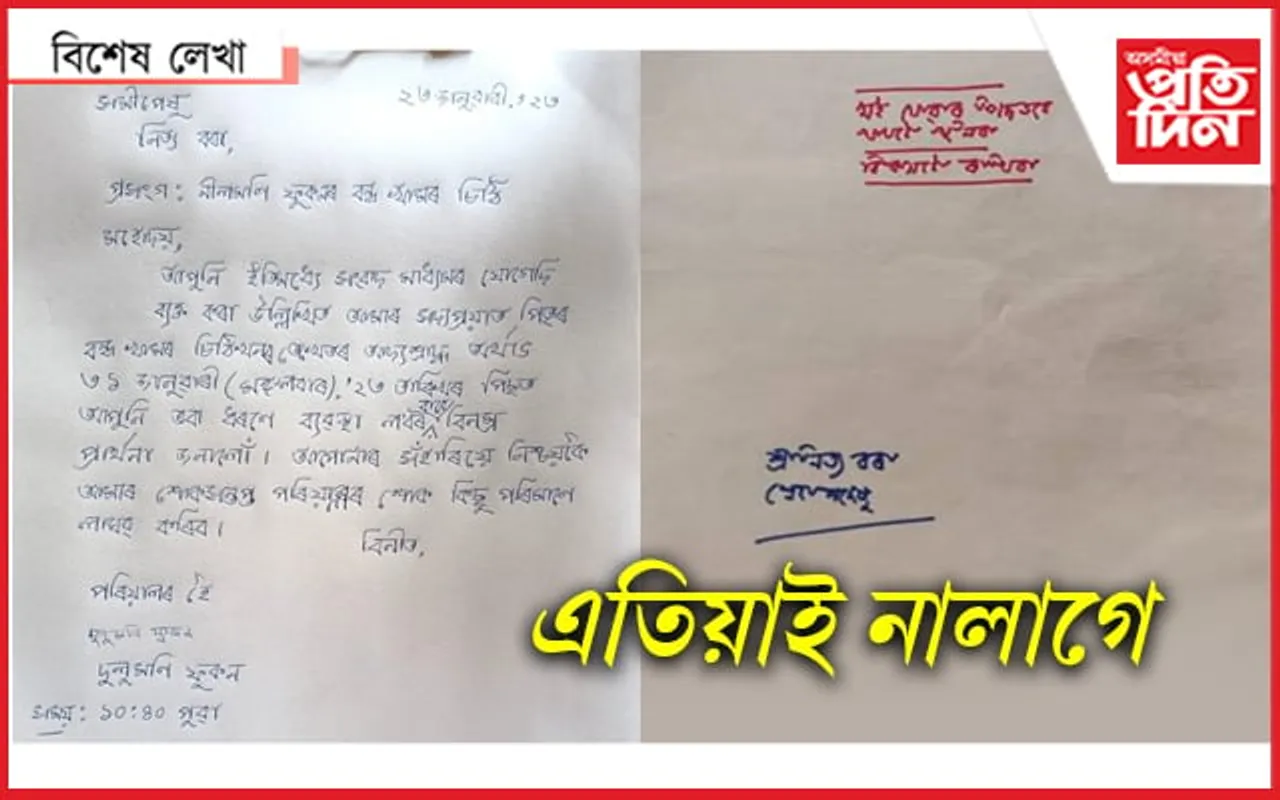 বিশেষ লেখা
অসমীয়া
প্ৰতি
দিন
সমীপেষু
২৩ জানুৱাৰী,'২৩
নিত্য বৰা,
প্ৰসংগ : নীলমণি ফুকনৰ বন্ধ খামৰ চিঠি
মহোদয়,
আপুনি ইতিমধ্যে সংবাদ মাধ্যমৰ যোগেদি
ব্যক্ত কৰা উল্লিখিত আমাৰ সদ্যপ্ৰয়াত পিতৃৰ
বন্ধ খামৰ চিঠিখন তেখেতৰ আদ্যশ্ৰাদ্ধ অৰ্থাৎ
৩১ জানুৱাৰী (মঙ্গলবাৰ),'২৩ তাৰিখৰ পিছত
আপুনি তেনে ধৰণে ব্যৱস্থা ল'বৰ বাবে বিনম্ৰ
প্ৰাৰ্থনা জনালোঁ। আপোনাৰ সঁহাৰিয়ে নিশ্চয়কৈ
আমাৰ শোকসন্তপ্ত পৰিয়ালৰ শোক কিছু পৰিমাণে
লাঘৱ কৰিব।
বিনীত,
পৰিয়ালৰ হৈ
দুলুমণি ফুকন
দুলুমণি ফুকন
সময় : ১০:৪০ পুৱা
মই
শ্ৰীনিত্য বৰা
এতিয়াই নালাগে